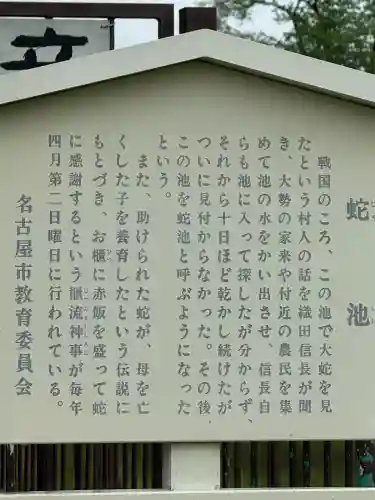 立
蛇池
戦国のころ、この池で大蛇を見
たという村人の話を織田信長が聞
き、大勢の家来や付近の農民を集
めて池の水をかい出させ、信長自
らも池に入って探したが分からず、
それから十日ほど乾かし続けたが
ついに見付からなかった。その後、
この池を蛇池と呼ぶようになった
という。
また、助けられた蛇が、母を亡
くした子を養育したという伝説に
もとづき、お櫃に赤飯を盛って蛇
に感謝するという櫃流神事が毎年
四月第二日曜日に行われている。
名古屋市教育委員会